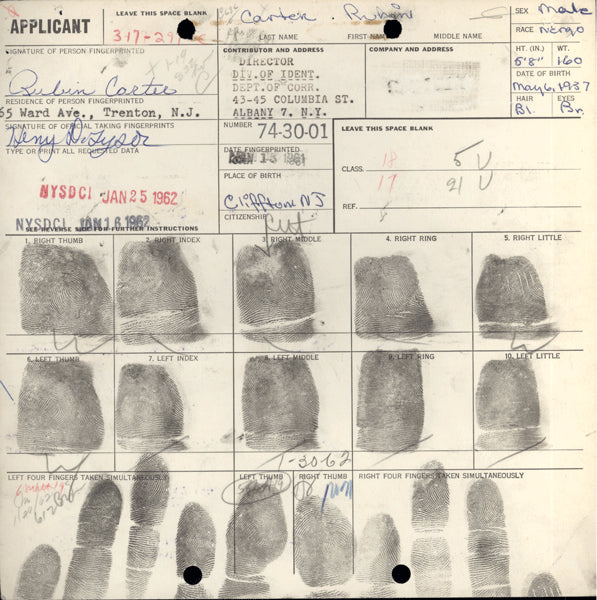 APPLICANT
LEAVE THIS SPACE BLANK
317-29
Carter. Rubin
LAST NAME FIRST NAME MIDDLE NAME
SEX Male
RACE Negro
SIGNATURE OF PERSON FINGERPRINTED
Rubin Carter
CONTRIBUTOR AND ADDRESS
DIRECTOR
DIV. OF IDENT.
DEPT. OF CORR.
43-45 COLUMBIA ST.
ALBANY 7, N.Y.
COMPANY AND ADDRESS
HT. (IN.) WT.
5'8" 160
DATE OF BIRTH
May 6, 1937
HAIR EYES
Bl. Br.
RESIDENCE OF PERSON FINGERPRINTED
65 Ward Ave., Trenton, N.J.
SIGNATURE OF OFFICIAL TAKING FINGERPRINTS
TYPE OR PRINT ALL REQUESTED DATA
NUMBER 74-30-01
DATE FINGERPRINTED
1961
PLACE OF BIRTH
Cliffton NJ
CITIZENSHIP
LEAVE THIS SPACE BLANK
CLASS. 18 5 U
17 21 U
REF.
NYSDCI JAN 25 1962
NYSDCI JAN 16 1962
SEE REVERSE SIDE FOR FURTHER INSTRUCTIONS
1. RIGHT THUMB 2. RIGHT INDEX 3. RIGHT MIDDLE 4. RIGHT RING 5. RIGHT LITTLE
6. LEFT THUMB 7. LEFT INDEX 8. LEFT MIDDLE 9. LEFT RING 10. LEFT LITTLE
1-30-62
LEFT FOUR FINGERS TAKEN SIMULTANEOUSLY LEFT THUMB RIGHT THUMB RIGHT FOUR FINGERS TAKEN SIMULTANEOUSLY